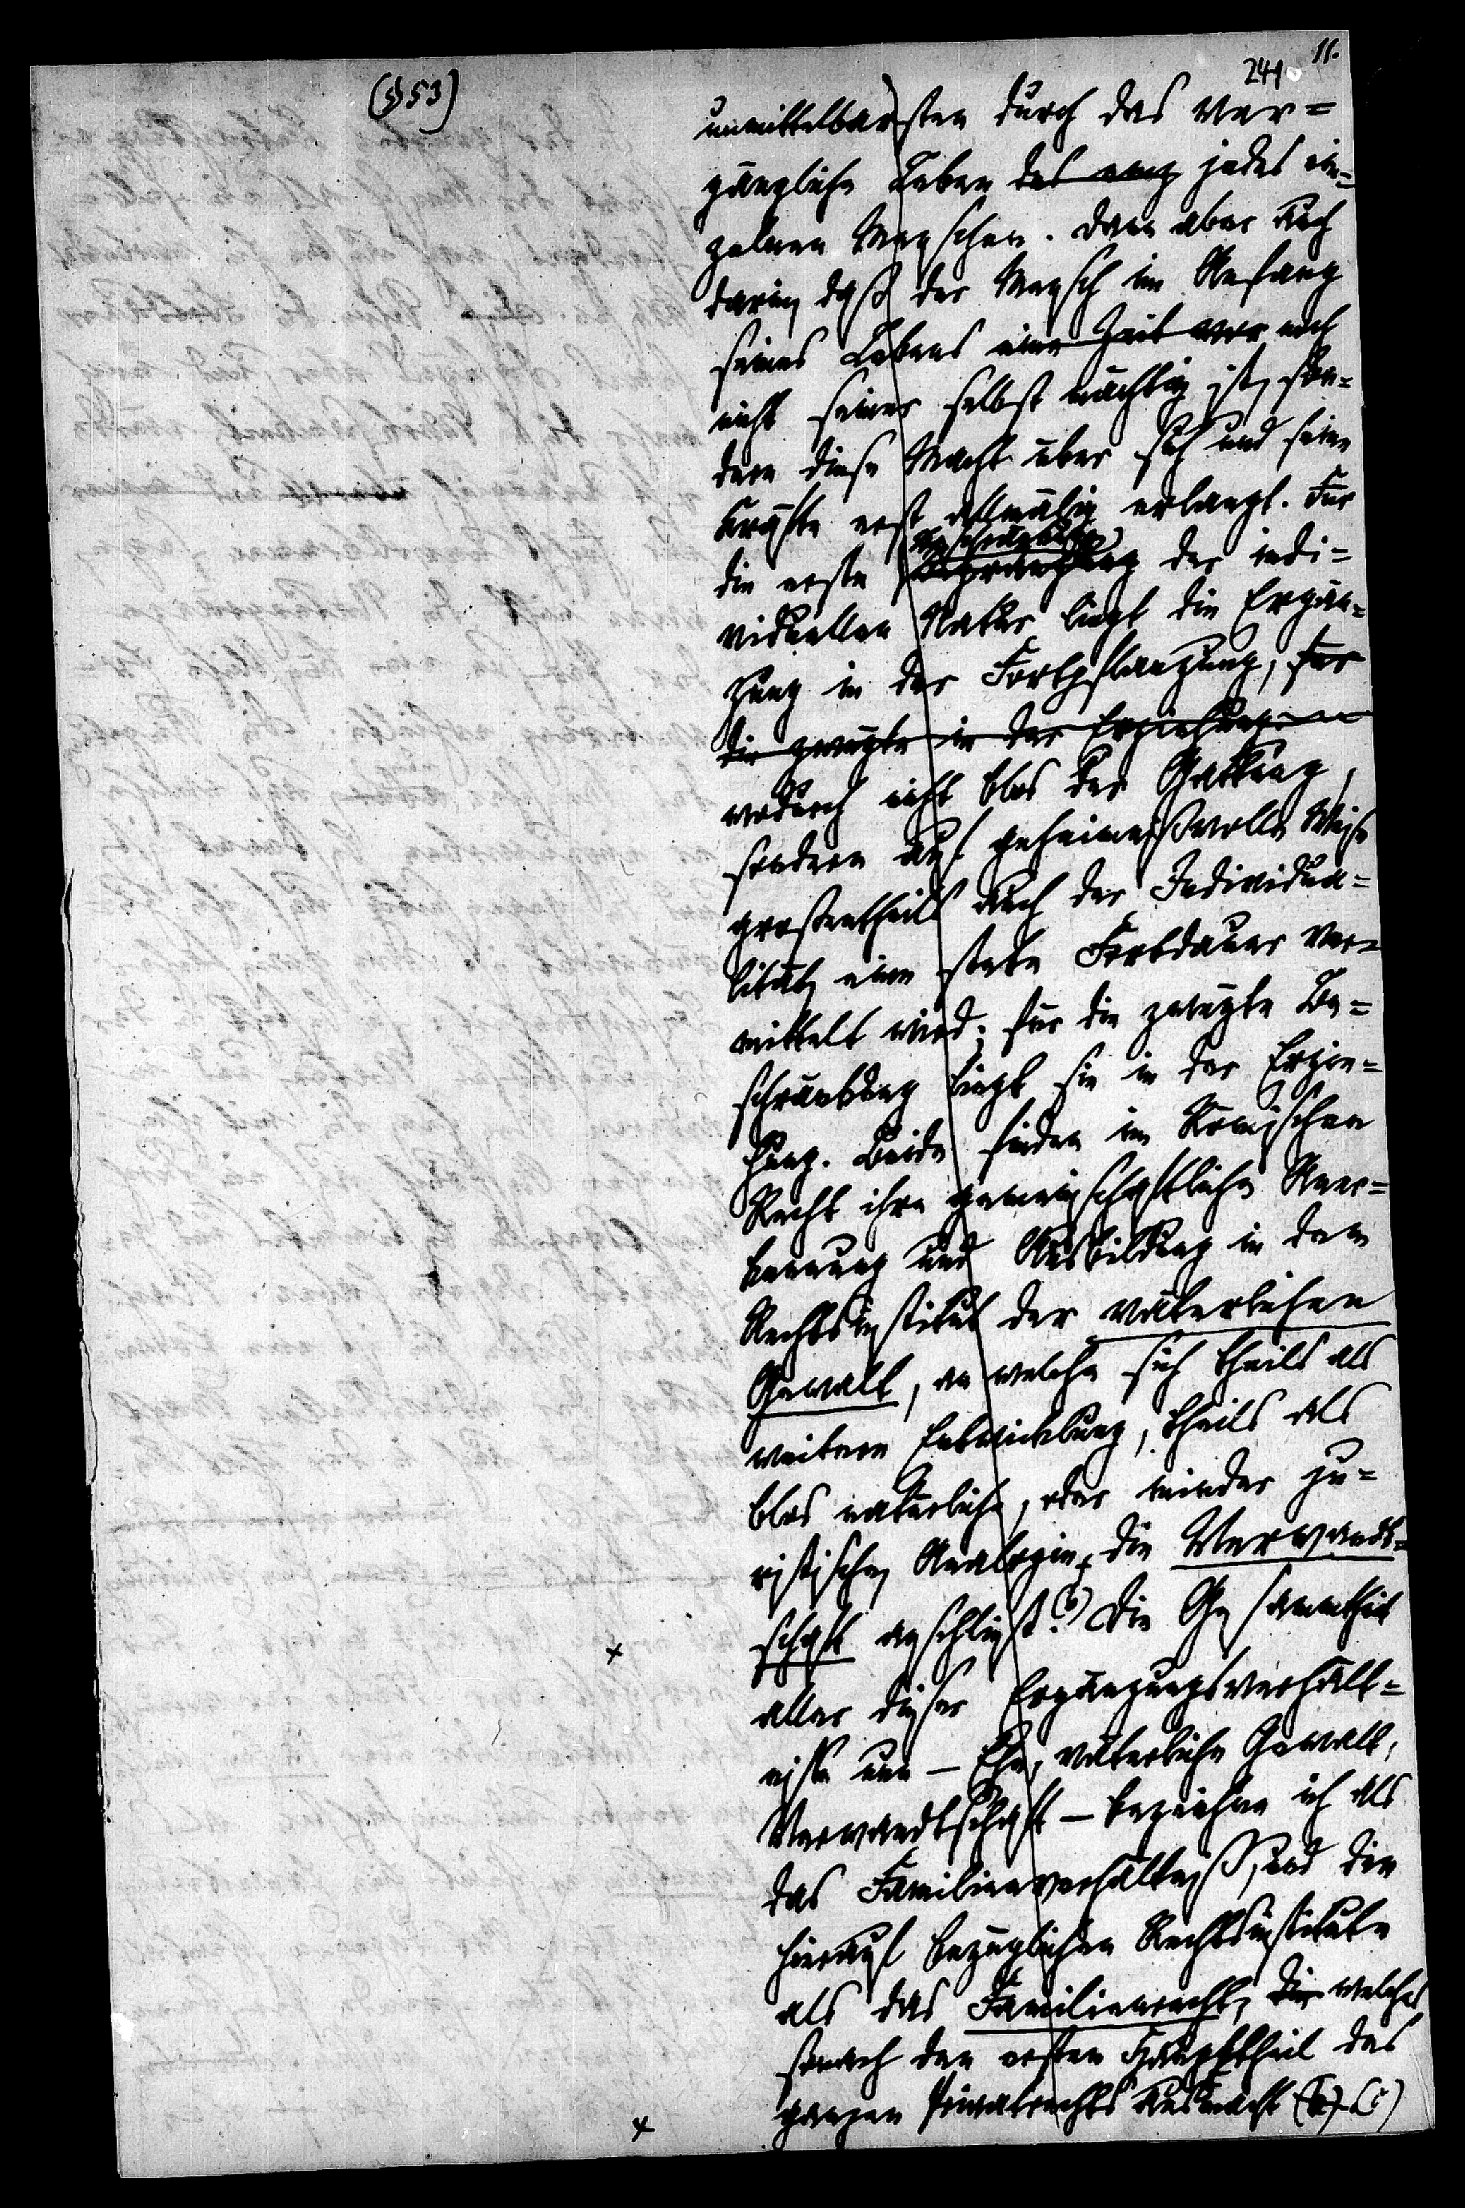 11.
241
(§ 53)
unmittelbarsten durch das ver=
gängliche Leben des ~~einz~~ jedes ein=
zelnen Menschen. Dann aber auch
darin, daß der Mensch im Anfang
seines Lebens ~~eine Zeit~~ noch
nicht seiner selbst mächtig ist, son=
dern diese Macht über sich und seine
Kräfte erst allmälig erlangt. Für
Beschränkung
die erste der indi=
viduellen Natur liegt die Ergän=
zung in der Fortpflanzung, ~~für~~
~~die zweyte in der Erziehung~~
wodurch nicht blos der Gattung,
sondern auf geheimnißvolle Weise
großentheils auch der Individua=
lität, eine stete Fortdauer ver=
mittelt wird; für die zweyte Be=
schränkung liegt sie in der Erzie=
hung. Beide finden im Römischen
Recht ihre gemeinschaftliche Aner=
kennung und Ausbildung in dem
Rechtsinstitut der väterlichen
Gewalt, an welche sich theils als
weitere Entwicklung, theils als
blos natürliche, oder minder ju=
ristische, Analogie, die Verwandt=
schaft anschließt. (b) Die Gesammtheit
aller dieser Ergänzungsverhält=
nisse nun – Ehe, väterliche Gewalt,
Verwandtschaft – bezeichne ich als
das Familienverhältniß, und die
hierauf bezüglichen Rechtsinstitute
als das Familienrecht, ~~die~~ welches
sonach den ersten Haupttheil des
ganzen Privatrechts ausmacht ~~(b)~~ (c)